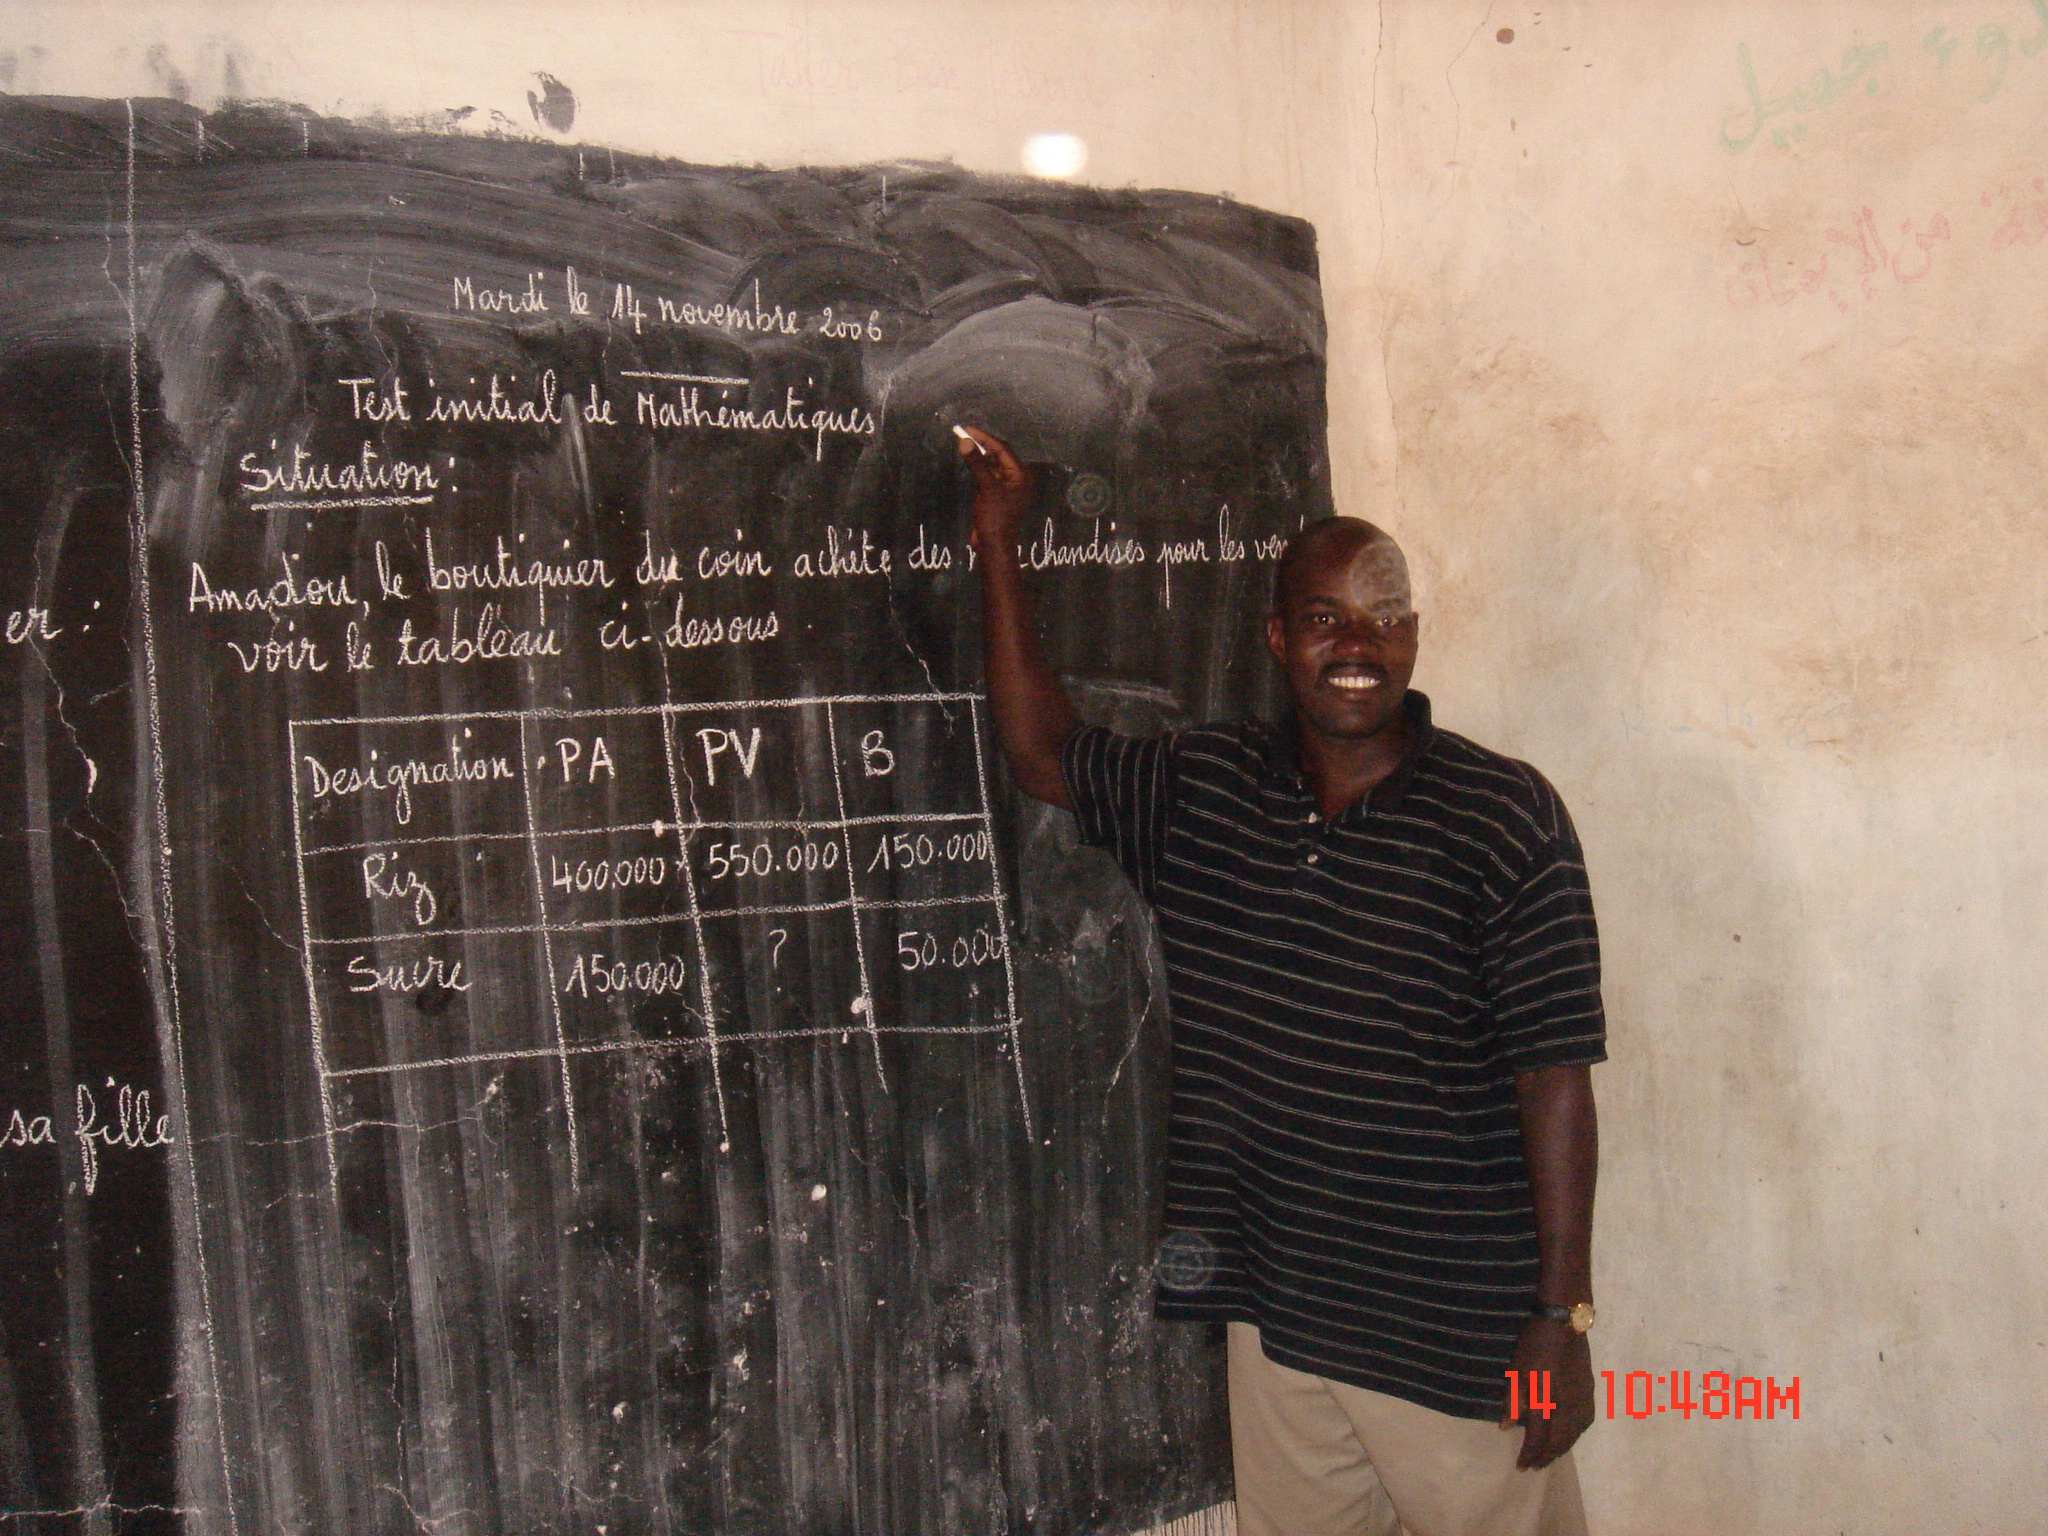 Mardi le 14 novembre 2006
Test initial de Mathématiques
Situation :
Amadou, le boutiquier du coin achète des marchandises pour les
voir le tableau ci-dessous
Designation PA PV B
Riz 400.000 550.000 150.000
Sucre 150.000 ? 50.000
er :
sa fille
14 10:48AM